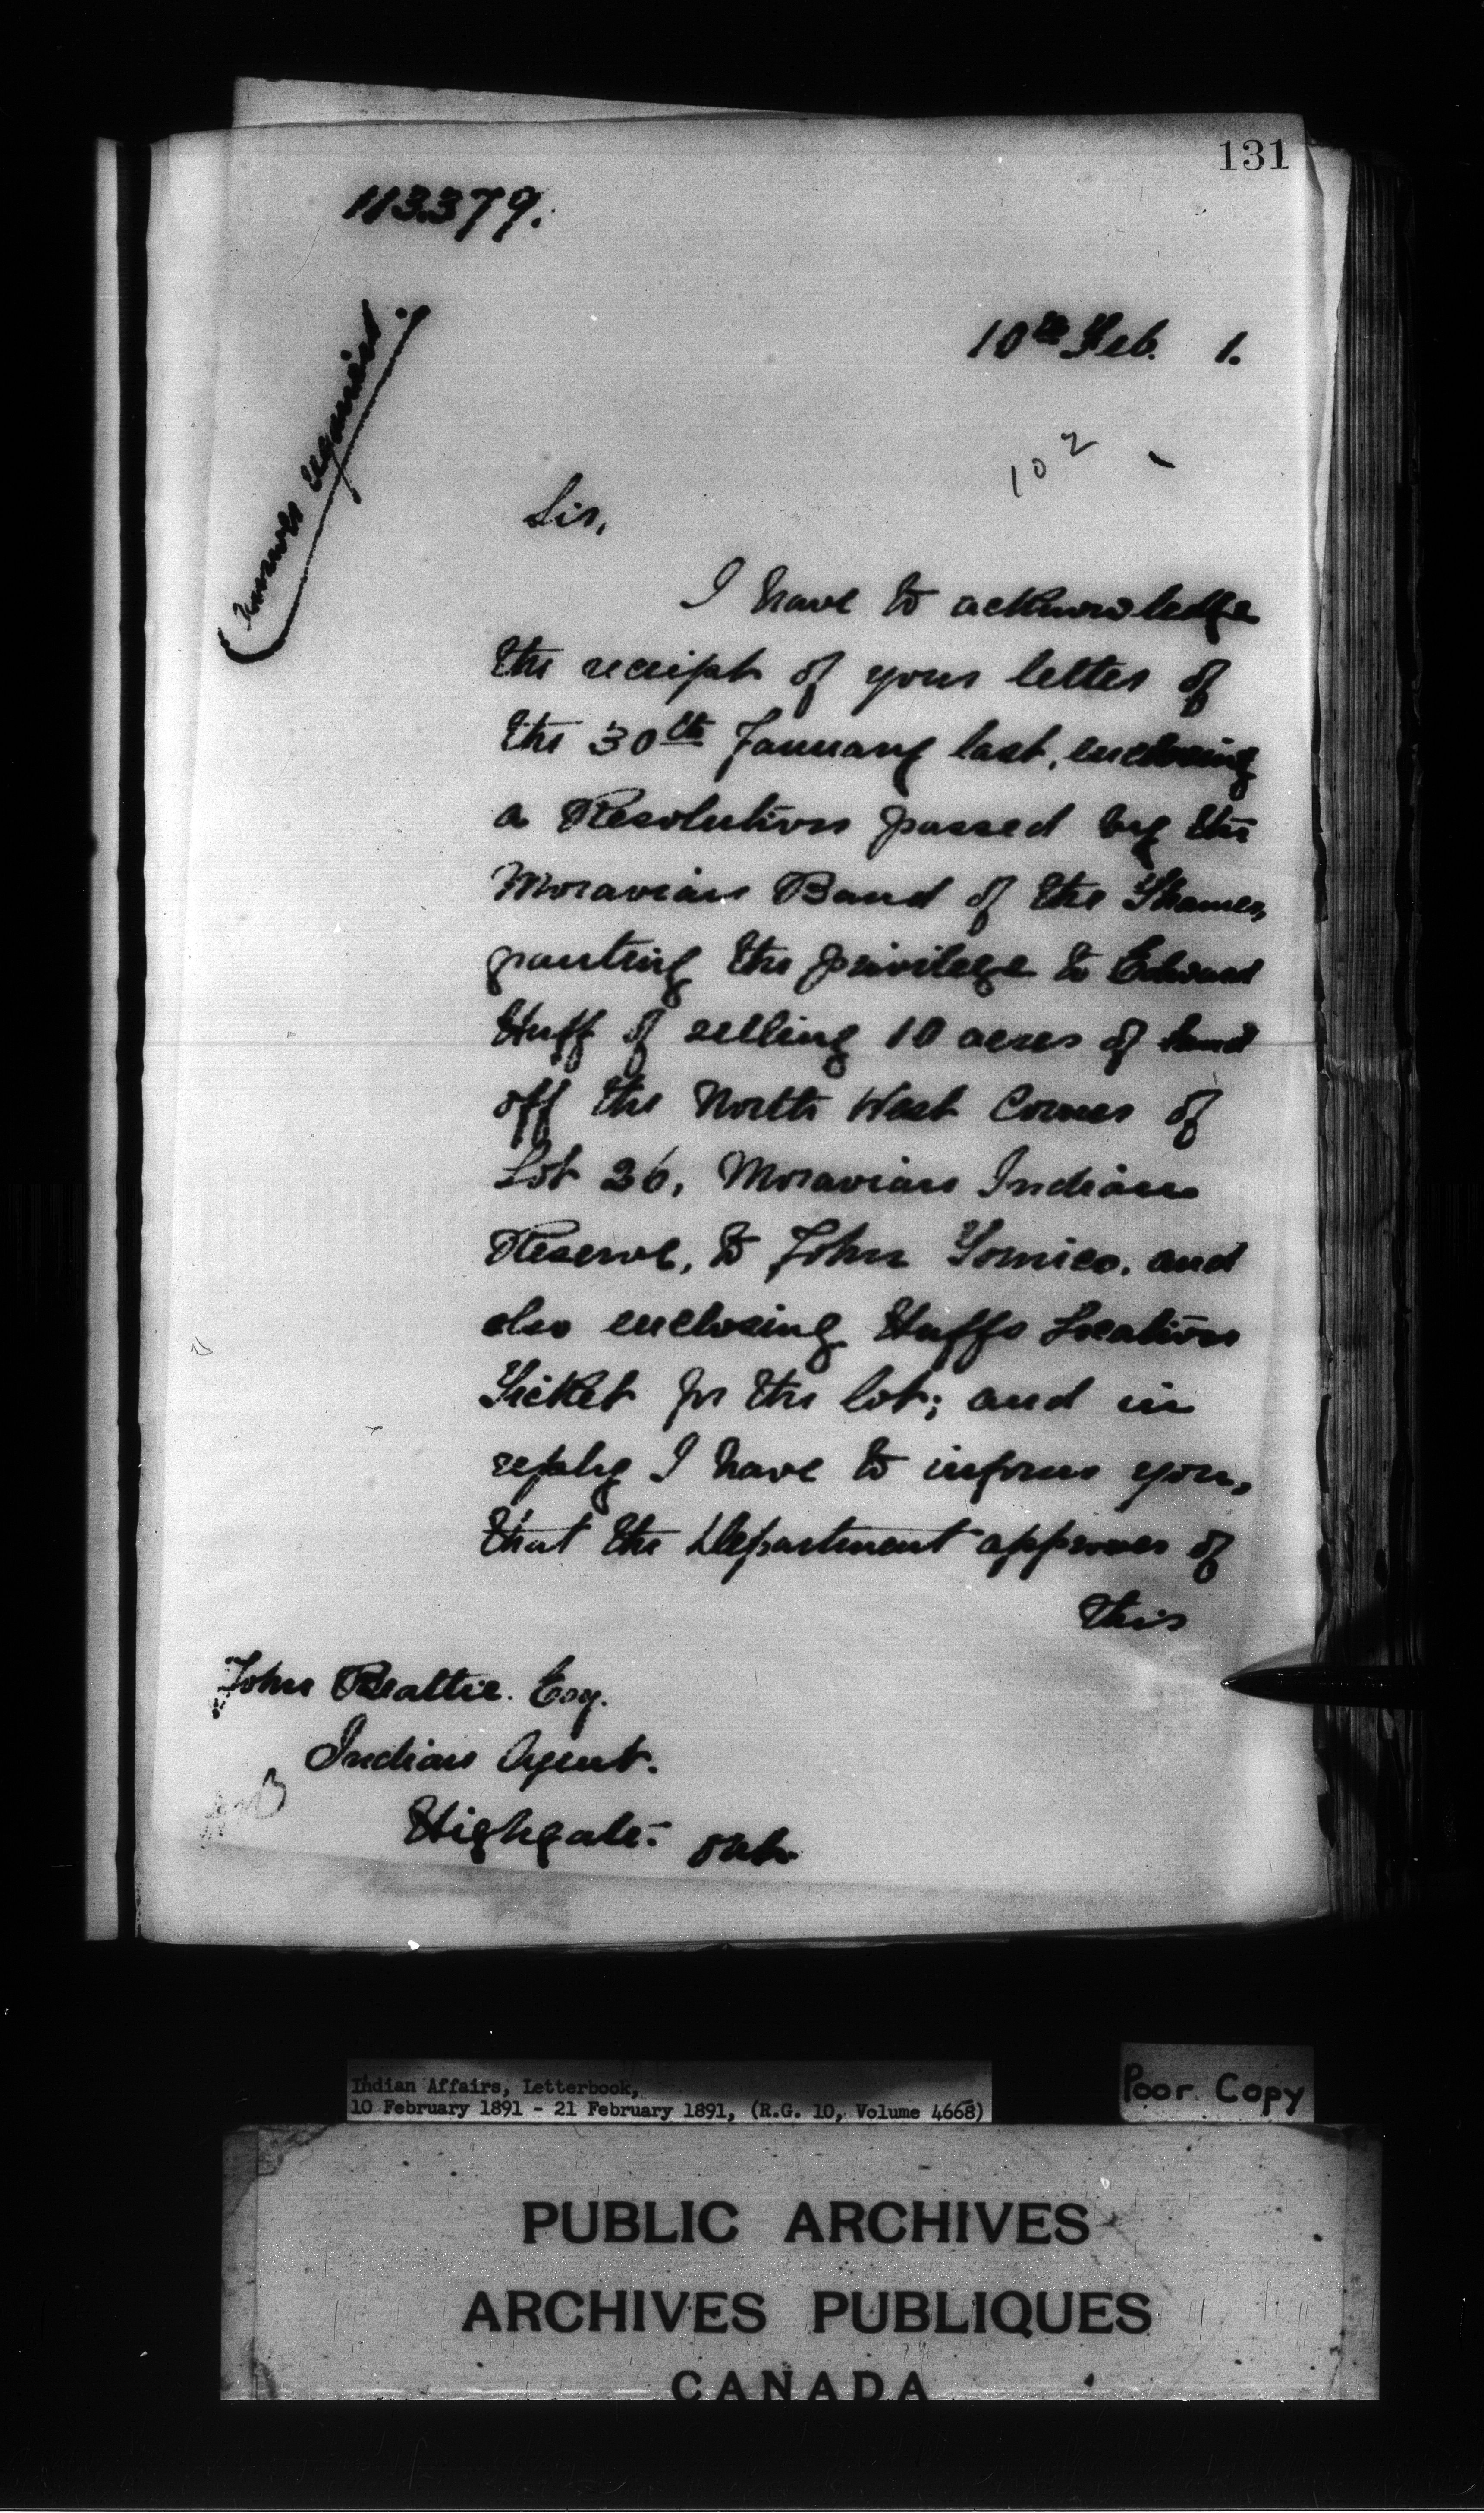 131
113.379.
10th Feb. 1.
Answer required.
102
Sir,
I have to acknowledge
the receipt of your letter of
the 30th January last, enclosing
a Resolution passed by the
Moravian Band of the Thames,
granting the privilege to Edward
Huff of selling 10 acres of land
off the North West Corner of
Lot 26, Moravian Indian
Reserve, to John Tomico, and
also enclosing Huffs Location
Ticket for the lot; and in
reply I have to inform you,
that the Department approves of
this
John Beattie. Esq.
Indian Agent.
Highgate. Ont.
Indian Affairs, Letterbook,
10 February 1891 - 21 February 1891, (R.G. 10, Volume 4668)
Poor Copy
PUBLIC ARCHIVES
ARCHIVES PUBLIQUES
CANADA